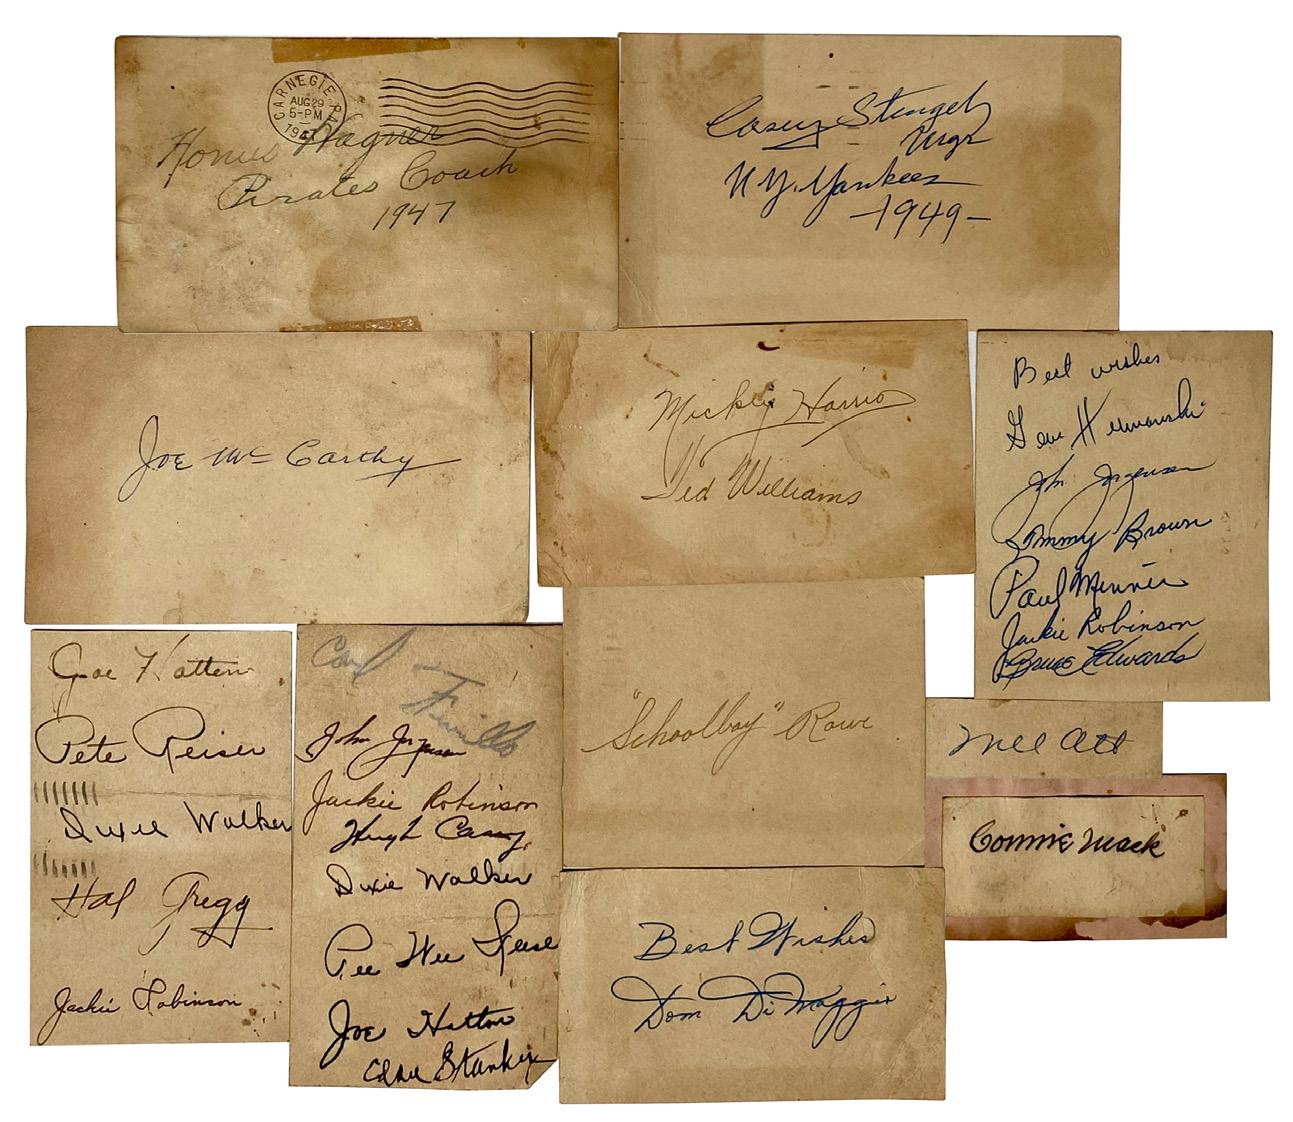 CARNEGIE PA.
AUG 29
5-PM
1947
Honus Wagner
Pirates Coach
1947
Casey Stengel
Mgr
N.Y. Yankees
-1949-
Joe McCarthy
Mickey Harris
Ted Williams
Best wishes
Gene Hermanski
John Jorgensen
Tommy Brown
Paul Minner
Jackie Robinson
Bruce Edwards
Joe Hatten
Pete Reiser
Dixie Walker
Hal Gregg
Jackie Robinson
Carl Furillo
John Jorgensen
Jackie Robinson
Hugh Casey
Dixie Walker
Pee Wee Reese
Joe Hatten
Eddie Stanky
"Schoolboy" Rowe
Mel Ott
Connie Mack
Best Wishes
Dom DiMaggio